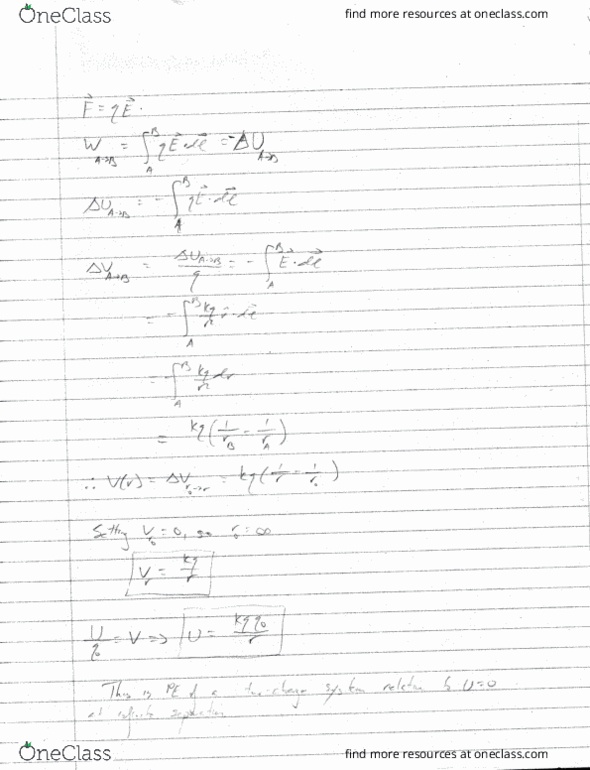 OneClass
find more resources at oneclass.com
F⃗ = qE⃗.
W_{A→B} = ∫_A^B qE⃗·dl⃗ = -ΔU_{A→B}
ΔU_{A→B} = -∫_A^B qE⃗·dl⃗
ΔV_{A→B} = ΔU_{A→B}/q = -∫_A^B E⃗·dl⃗
= -∫_A^B kq/r² r̂·dl⃗
= -∫_A^B kq/r² dr
= kq(1/r_B - 1/r_A)
∴ V(r) = ΔV_{r₀→r} = kq(1/r - 1/r₀)
Setting V_{r₀} = 0, so r₀ = ∞
V_r = kq/r
U/q₀ = V ⇒ U = kqq₀/r
This is PE of a two-charge system relative to U=0
at infinite separation
OneClass
find more resources at oneclass.com